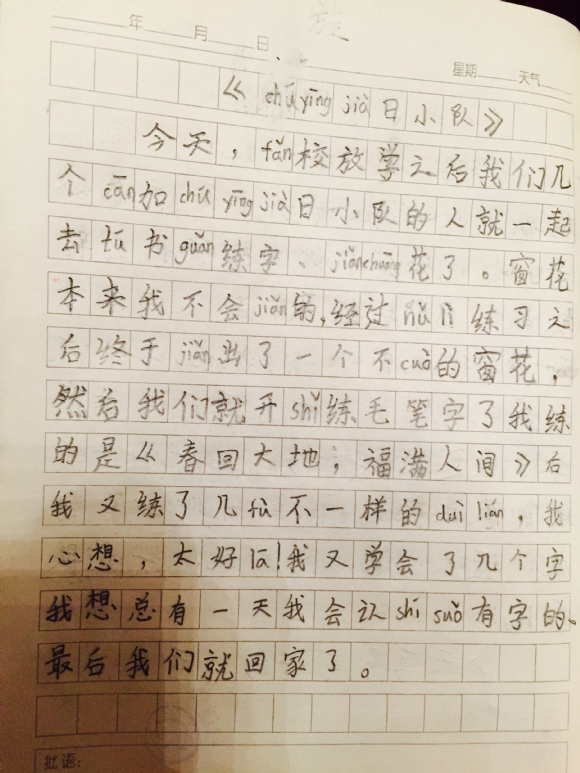 年 月 日
星期 天气
《chú yīng jià日小队》
今天，fǎn校放学之后我们几
个cān加chú yīng jià日小队的人就一起
去tú书guǎn练字、jiǎnchuāng花了。窗花
本来我不会jiǎn的,经过nǔ lì练习之
后终于jiǎn出了一个不cuò的窗花，
然后我们就开shǐ练毛笔字了我练
的是《春回大地，福满人间》后
我又练了几fù不一样的duì lián，我
心想，太好la!我又学会了几个字
我想总有一天我会认shí suǒ有字的、
最后我们就回家了。
批语：